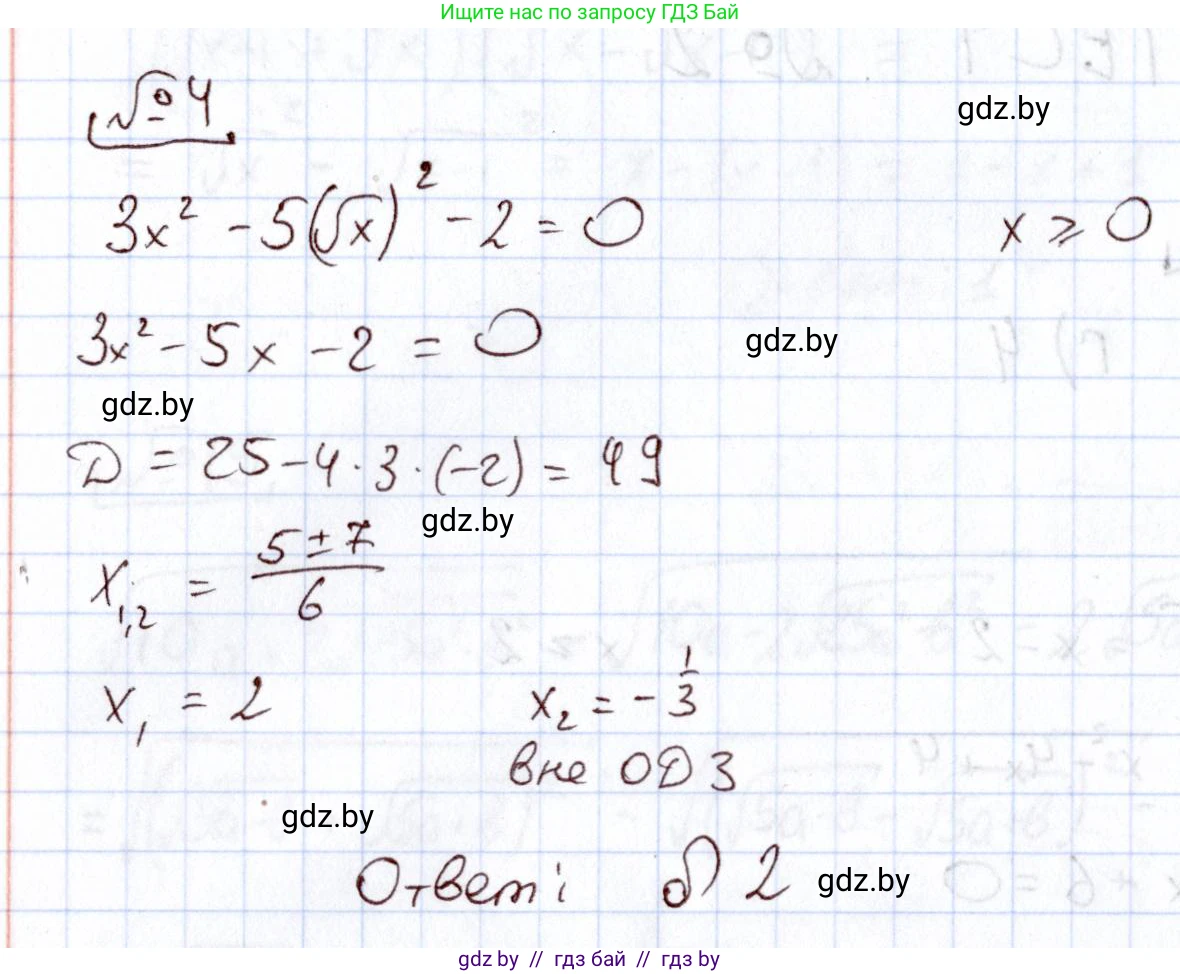 Ищите нас по запросу ГДЗ Бай
№ 4
gdz.by
3x² - 5(√x)² - 2 = 0 x ≥ 0
3x² - 5x - 2 = 0
gdz.by
gdz.by
D = 25 - 4 · 3 · (-2) = 49
gdz.by
x₁,₂ = (5 ± 7)/6
x₁ = 2 x₂ = - 1/3
вне ОДЗ
gdz.by
Ответ: б) 2
gdz.by
gdz.by // гдз бай // гдз by